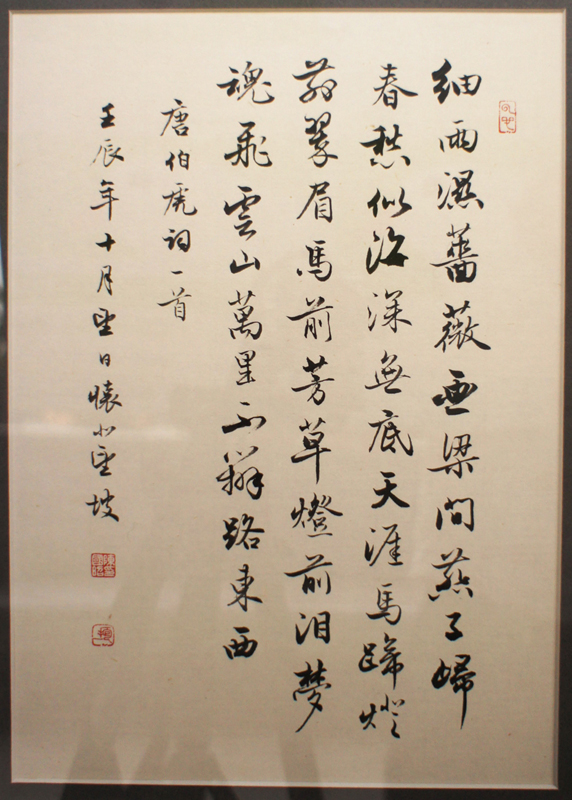 細雨濕薔薇畫梁間燕子歸
春愁似海深無底天涯馬蹄燈
前翠眉馬前芳草燈前泪夢
魂飛雲山萬里不辨路東西
唐伯虎詞一首
壬辰年十月望日懷坡